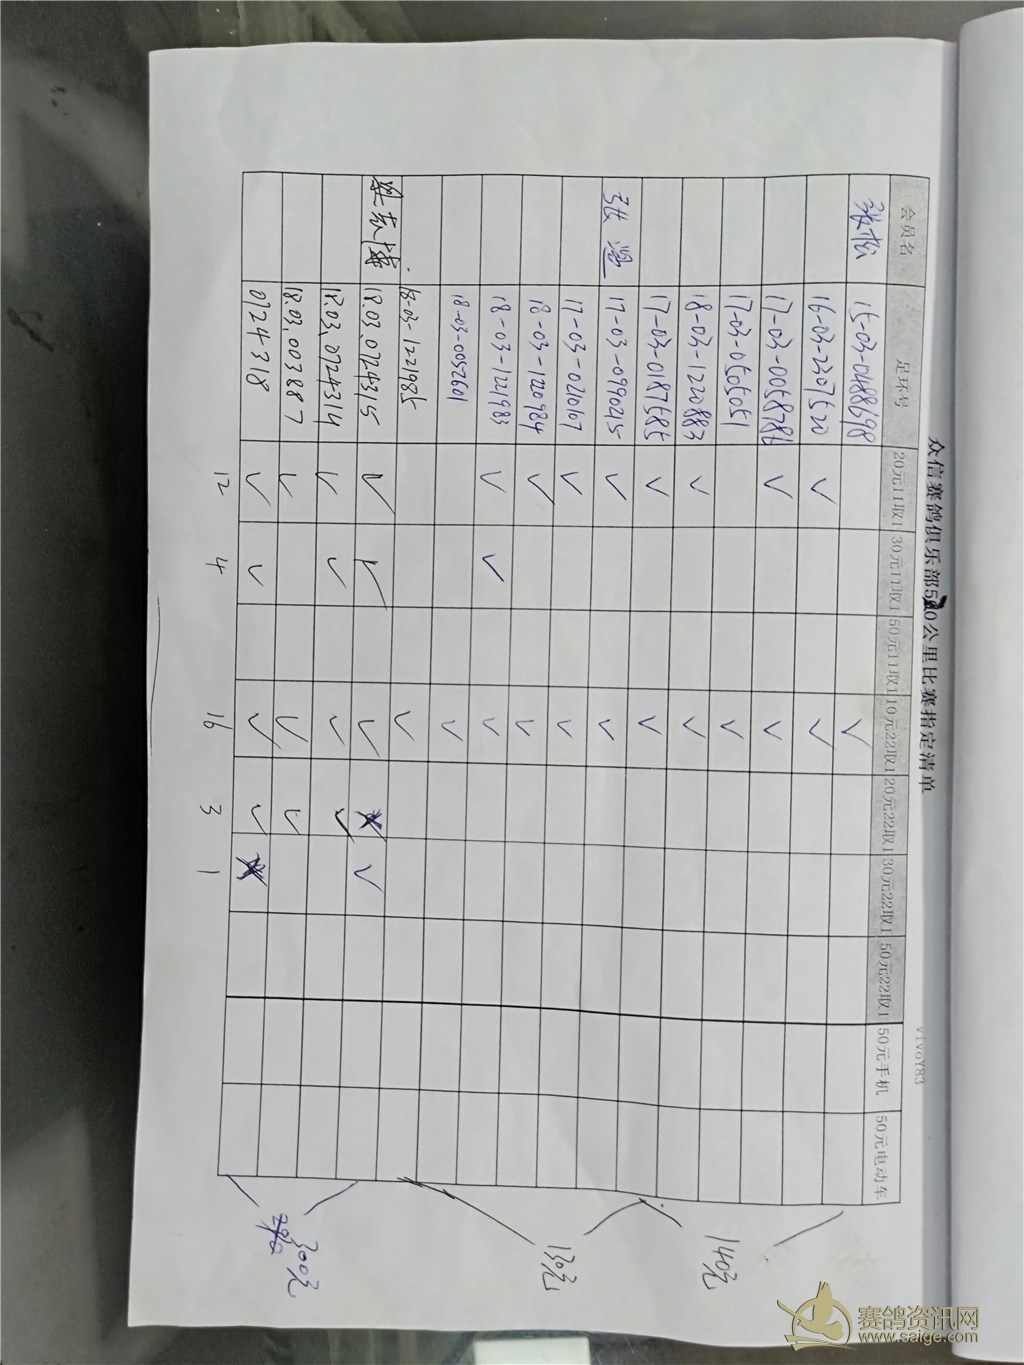 众信赛鸽俱乐部500公里比赛指定清单
VIVOY83
会员名 足环号 20元11取1 30元11取1 50元11取1 10元22取1 20元22取1 30元22取1 50元22取1 50元手机 50元电动车
张松 15-03-0488698 ✓
16-03-2307520 ✓ ✓
17-03-0058786 ✓ ✓
17-03-0505051 ✓
18-03-1220883 ✓ ✓
17-03-0187585 ✓ ✓
张 17-03-0990215 ✓ ✓
17-03-0210107 ✓ ✓
18-03-1220984 ✓ ✓
18-03-1221983 ✓ ✓ ✓
18-03-0052601 ✓
18-03-1221985 ✓
18.03.0724315 ✓ ✓ ✓ ✓
18.03.0724314 ✓ ✓ ✓ ✓
18.03.003887 ✓ ✓ ✓
0724318 ✓ ✓ ✓ ✓
12 4 16 3 1
140元
130元
300元
赛鸽资讯网
www.saige.com